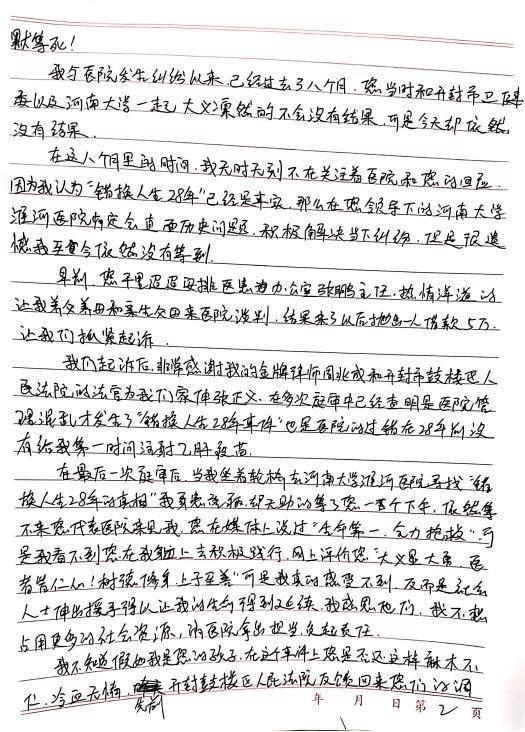 默等死！
我与医院发生纠纷以来，已经过去了八个月，您当时和开封市卫健
委以及河南大学一起大义凛然的不会没有结果，可是今天却依然
没有结果。
在这八个月里的时间，我无时无刻不在关注着医院和您的回应，
因为我认为“错换人生28年”已经是事实，那么在您领导下的河南大学
淮河医院肯定会直面历史问题，积极解决当下纠纷，但是很遗
憾我至今依然没有等到。
早前，您千里迢迢安排医患办公室张鹏主任，热情洋溢的
让我养父养母和亲生父母来医院谈判，结果来了以后抛出一人借款5万，
让我们抓紧起诉。
我们起诉后，非常感谢我的金牌律师周兆成和开封市鼓楼区人
民法院的法官为我们家伸张正义，在多次庭审中已经查明是医院管
理混乱才发生了“错换人生28年事件”也是医院的过错在28年前没
有给我第一时间注射乙肝疫苗。
在最后一次庭审后，当我坐着轮椅在河南大学淮河医院寻找“错
换人生28年的真相”我身患癌症，却无助的等了您一整个下午，依然等
不来您代表医院来见我，您在媒体上说过“生命第一，全力抢救”，可
是我看不到您在我身上去积极践行，网上评价您“大义显大勇，医
者皆仁心！树强修身上手至善”可是我真的感受不到，反而是社会
人士伸出援手得以让我的生命得到延续，我感恩他们，我不想
占用更多的社会资源，请医院拿出担当，负起责任。
我不知道假如我是您的孩子，在这个事件上您是否还这样麻木不
仁，冷血无情，先前开封鼓楼区人民法院反馈回来您们的调
年 月 日 第 2 页